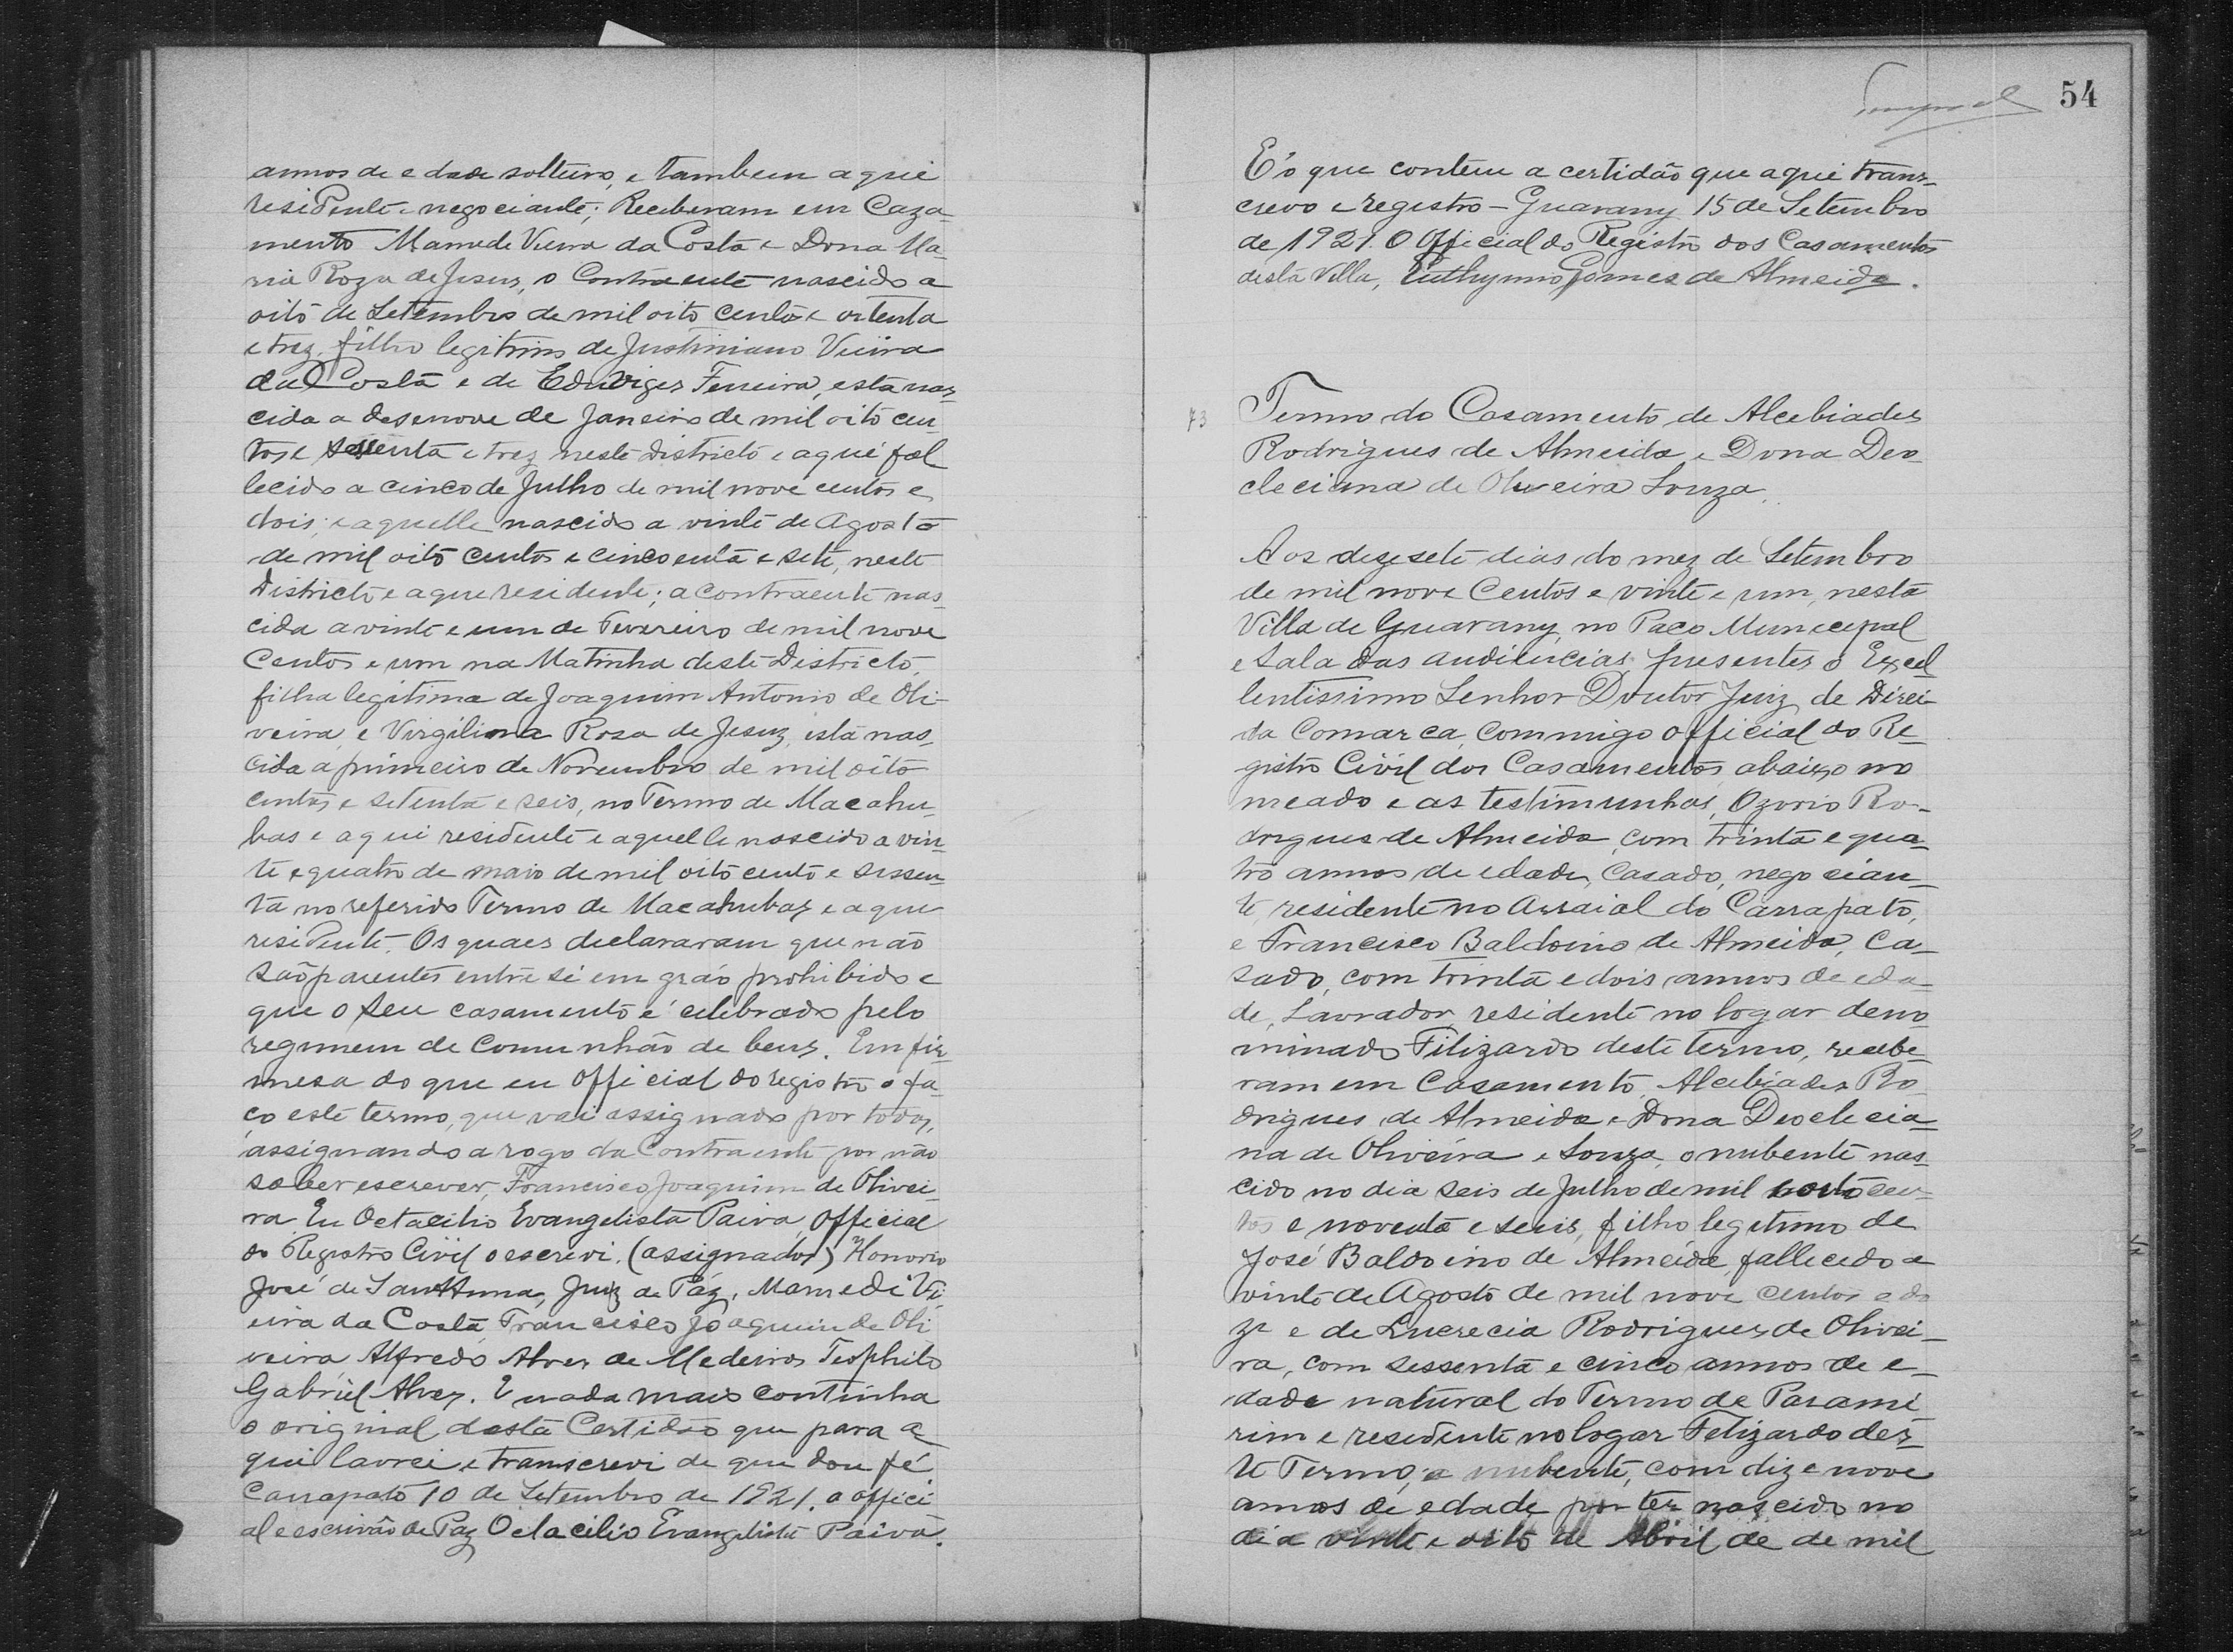 annos de edade solteiro, e tambem aqui
residente e negociante; Receberam em Caza-
mento Mamede Vieira da Costa e Dona Ma-
ria Roza de Jesus, o Contraente nascido a
oito de Setembro de mil oito centos e oitenta
e trez, filho legitimo de Justiniano Vieira
da Costa e de Eduviges Ferreira, esta nas-
cida a desenove de Janeiro de mil oito cen-
tos e sessenta e trez neste districto e aqui fal
lecida a cinco de Julho de mil nove centos e
dois; e aquelle nascido a vinte de Agosto
de mil oito centos e cincoenta e sete, neste
Districto e aqui residente; a contraente nas-
cida a vinte e um de Fevereiro de mil nove
Centos e um na Matinha deste Districto,
filha legitima de Joaquim Antonio de Oli-
veira, e Virgilina Rosa de Jesuz, esta nas-
cida a primeiro de Novembro de mil oito
centos e setenta e seis, no Termo de Macahu-
bas e aqui residente e aquelle nascido a vin-
te e quatro de maio de mil oito cento e sessen-
ta no referido Termo de Macahubas e aqui
residente. Os quaes declararam que não
são parentes entre si em gráo prohibido e
que o seu casamento é celebrado pelo
regimem de Comunhão de bens. Em fir-
mesa do que eu official do registro o fa-
ço este termo, que vai assignado por todos,
assignando a rogo da Contraente por não
saber escrever, Francisco Joaquim de Olivei-
ra. Eu Octacilio Evangelista Paiva, Official
do Registro Civil o escrevi. (assignados) Honorio
José de Sant'Anna, Juiz de Páz, Mamedi Vi-
eira da Costa, Francisco Joaquim de Oli
veira, Alfredo Alves de Medeiros Teophilo
Gabriel Alves. E nada mais continha
o original desta Certidão que para a-
qui lavrei e transcrevi de que dou fé
Carrapato 10 de Setembro de 1921. o offici
al e escrivão de Paz Octacilio Evangelista Paiva.
54
E' o que contem a certidão que aqui trans-
crevo e registro - Guarany 15 de Setembro
de 1921. O Official do Registro dos Casamentos
desta Villa, Euthymio Gomes de Almeida.
73 Termo do Casamento de Alcebiades
Rodrigues de Almeida e Dona Deo-
cleciana de Oliveira Souza.
Aos dezesete dias do mez de Setembro
de mil nove Centos e vinte e um, nesta
Villa de Guarany, no Paço Municipal
e Sala das audiencias, presentes o Excel
lentissimo Senhor Doutor Juiz de Direi
da Comarca, commigo official do Re-
gistro Civil dos Casamentos abaixo no
meado e as testimunhas, Ozorio Ro-
drigues de Almeida, com trinta e qua-
tro annos de edade, Casado, negocian-
te, residente no Arraial do Carrapato,
e Francisco Baldoino de Almeida, Ca-
sado, com trinta e dois annos de eda-
de, Lavrador, residente no logar deno
minado Filizardo deste termo, recebe-
ram em Casamento, Alcebiades Ro
drigues de Almeida e Dona Deoclecia-
na de Oliveira e Souza, o nubente nas-
cido no dia seis de Julho de mil oito cen-
tos e noventa e seis, filho legitimo de
José Baldoino de Almeida, fallecido a
vinte de Agosto de mil nove centos e do
ze e de Lucrecia Rodrigues de Olivei-
ra, com sessenta e cinco annos de e-
dade natural do Termo de Parami
rim e residente no logar Felizardo des-
te Termo; a nubente, com diz e nove
annos de edade por ter nascido no
dia vinte e oito de Abril de de mil